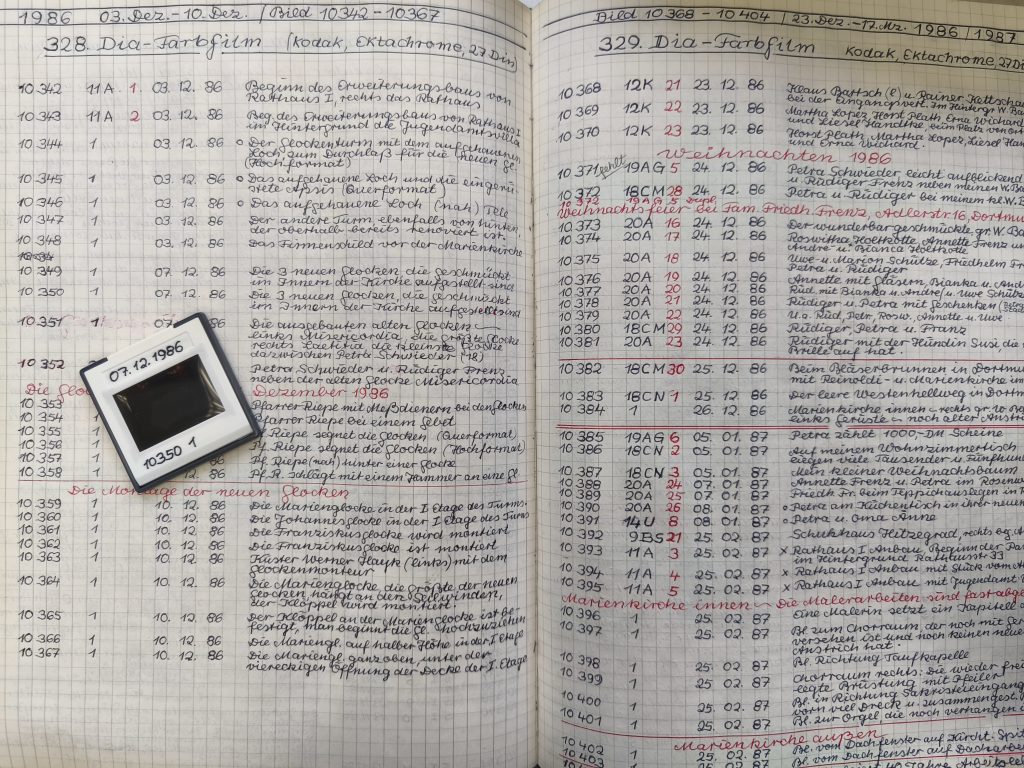 1986 03. Dez. - 10. Dez. / Bild 10342 - 10367
328. Dia-Farbfilm (Kodak, Ektachrome, 27 Din)
10 342 11A 1 03. 12. 86 Beginn des Erweiterungsbaus von
Rathaus I, rechts das Rathaus
10 343 11A 2 03. 12. 86 Beg. des Erweiterungsbaus von Rathaus I
im Hintergrund die Jugendamtsvilla
10 344 1 03. 12. 86 Der Glockenturm mit dem aufgehauenen
Loch, zum Durchlaß für die neuen Gl.
(Hochformat)
10 345 1 03. 12. 86 o Das aufgehauene Loch und die eingerü-
stete Apsis (Querformat)
10 346 1 03. 12. 86 o Das aufgehauene Loch (nah) Tele
10 347 1 03. 12. 86 Der andere Turm, ebenfalls von hinten,
der oberhalb bereits renoviert ist.
10 348 1 03. 12. 86 Das Firmenschild vor der Marienkirche
10 349 1 07. 12. 86 Die 3 neuen Glocken, die geschmückt
im Innern der Kirche aufgestellt sind
10 350 1 07. 12. 86 Die 3 neuen Glocken, die geschmückt
im Innern der Kirche aufgestellt sind
10 351 1 07. Die ausgebauten alten Glocken
links Misericordia, die größte Glocke
rechts Laetitia die kleinste Glocke
dazwischen Petra Schwieder (18)
10 352 Petra Schwieder u. Rüdiger Frenz
neben der alten Glocke Misericordia
Die Glo Dezember 1986
10 353 Pfarrer Riepe mit Meßdienern bei den Glocken
10 354 Pfarrer Riepe bei einem Gebet
10 355 Pf. Riepe segnet die Glocken (Querformat)
10 356 Pf. Riepe segnet die Glocken (Hochformat)
10 357 Pf. Riepe (nah) hinter einer Glocke
10 358 1 Pf. R. schlägt mit einem Hammer an eine Gl.
07. 12. 1986
10350 1
Die Montage der neuen Glocken
10 359 1 10. 12. 86 Die Marienglocke in der I Etage des Turms.
10 360 1 10. 12. 86 Die Johannesglocke in der I Etage des Turms
10 361 1 10. 12. 86 Die Franziskusglocke wird montiert
10 362 1 10. 12. 86 Die Franziskusglocke ist montiert
10 363 1 10. 12. 86 Küster Werner Hayk (links) mit dem
Glockenmonteur
10 364 1 10. 12. 86 Die Marienglocke, die Größte der neuen
Glocken, hängt an den Seilwinden,
der Klöppel wird montiert.
10 365 1 10. 12. 86 Der Klöppel an der Marienglocke ist be-
festigt, man beginnt die Gl. hochzuziehen
10 366 1 10. 12. 86 Die Mariengl. auf halber Höhe in der I Etage
10 367 1 10. 12. 86 Die Mariengl. ganz oben, unter der
viereckigen Öffnung der Decke der I. Etage
Bild 10 368 - 10 404 / 23. Dez. - 17. Mz. 1986 / 1987
329. Dia-Farbfilm Kodak, Ektachrome, 27 Di
10 368 12K 21 23. 12. 86 Klaus Bartsch (l) u. Rainer Kettschau
bei der Eingangsvert. Im Hintergr. W. Ba
10 369 12K 22 23. 12. 86 Martha Lopez, Horst Plath, Erna Wichard
und Liesel Handtke, beim Platz von
10 370 12K 23 23. 12. 86 Horst Plath, Martha Lopez, Liesel Han
und Erna Wichard.
Weihnachten 1986
10 371 fehlt 19AG 5 24. 12. 86 Petra Schwieder leicht aufblickend
u. Rüdiger Frenz neben meinen W. Ba
10 372 18CM 28 24. 12. 86 Petra u. Rüdiger bei meinem kl. W. B
10 372 19AG 5 dupl.
Weihnachtsfeier bei Fam. Friedh. Frenz, Adlerstr. 16, Dortmu
10 373 20A 16 24. 12. 86 Der wunderbar geschmückte gr. W. Ba
10 374 20A 17 24. 12. 86 Roswitha Holtkotte, Annette Frenz un
Andre- u. Bianca Holtkotte
10 375 20A 18 24. 12. 86 Uwe- u. Marion Schütze, Friedhelm Fr
Petra u. Rüdiger
10 376 20A 19 24. 12. 86 Annette mit Gläsern, Bianka u. And
10 377 20A 20 24. 12. 86 Rüd. mit Bianka u. Andre / u. Uwe Schütz
10 378 20A 21 24. 12. 86 Rüdiger u. Petra mit Geschenken
10 379 20A 22 24. 12. 86 V.o. Rüd, Petr, Rosw, Annette u. Uwe
10 380 18CM 29 24. 12. 86 Rüdiger, Petra u. Franz
10 381 20A 23 24. 12. 86 Rüdiger mit der Hündin Susi, die
Brille auf hat.
10 382 18CM 30 25. 12. 86 Beim Bläserbrunnen in Dortm
mit Reinoldi- u. Marienkirche im
10 383 18CN 1 25. 12. 86 Der leere Westenhellweg in Dortm
10 384 1 26. 12. 86 Marienkirche innen - rechts gr. W. Ba
links Gerüste - noch alter Anstri
10 385 19AG 6 05. 01. 87 Petra zählt 1000,- DM Scheine
10 386 18CN 2 05. 01. 87 Auf meinem Wohnzimmertisch
liegen viele Tausender u. Fünfhun
10 387 18CN 3 05. 01. 87 Mein kleiner Weihnachtsbaum
10 388 20A 24 07. 01. 87 Annette Frenz u. Petra im Rosenw
10 389 20A 25 07. 01. 87 Friedh. Fr. beim Teppichauslegen in R
10 390 20A 26 08. 01. 87 o Petra am Küchentisch in ihrer neuen
10 391 14U 8 08. 01. 87 o Petra u. Oma Anne
10 392 9BS 21 25. 02. 87 Schuhhaus Hitzegrad, rechts eg.
10 393 11A 3 25. 02. 87 x Rathaus I Anbau, Beginn der
im Hintergrund Rathausstr. 33
10 394 11A 4 25. 02. 87 x Rathaus I Anbau mit Stück vom
10 395 11A 5 25. 02. 87 x Rathaus I Anbau mit Jugendamt
Marienkirche innen - Die Malerarbeiten sind fast abge
10 396 1 25. 02. 87 Eine Malerin setzt ein Kapitell
10 397 1 25. 02. 87 Bl. zum Chorraum, der noch mit Ger
versehen ist und noch keinen neue
Anstrich hat.
10 398 1 25. 02. 87 Bl. Richtung Taufkapelle
10 399 1 25. 02. 87 Chorraum rechts: Die wieder frei
legte Brüstung mit Pfeiler
10 400 1 25. 02. 87 Bl. in Richtung Sakristeieingang
vorn viel Dreck u. zusammengest.
10 401 1 25. 02. 87 Bl. zur Orgel die noch verhangen
Marienkirche außen
10 402 1 25. 02. 87 Bl. vom Dachfenster auf Kircht. Spit
10 403 1 25. 02. 87 Bl. vom Dachfenster auf Dacharbe